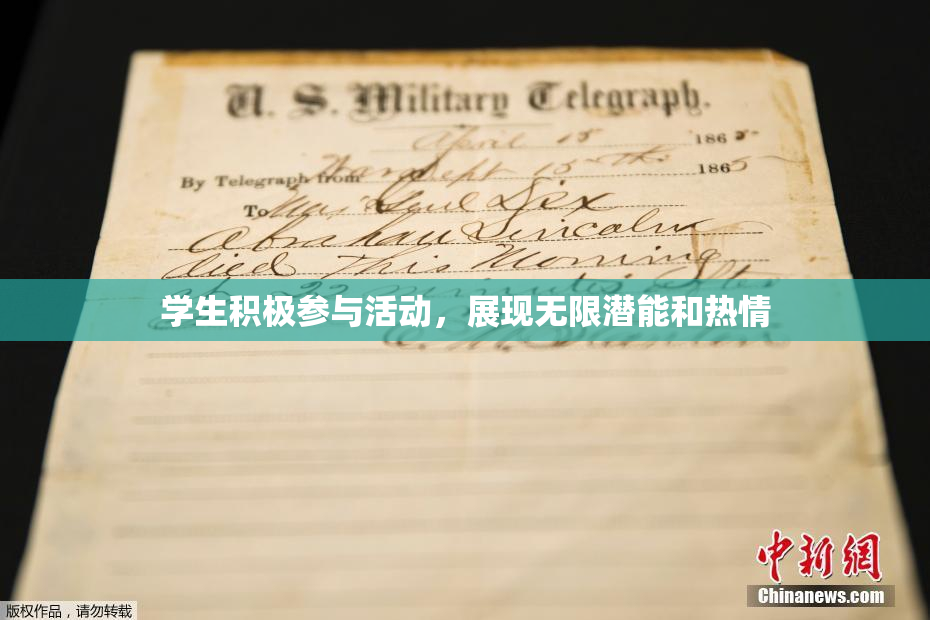 U. S. Military Telegraph.
April 15 1865
By Telegraph from War Dept 15th 1865
To Maj Genl Dix
Abraham Lincoln
died This Morning
at 22 minutes after
学生积极参与活动，展现无限潜能和热情
E. M. Stanton
中新网
Chinanews.com
版权作品，请勿转载